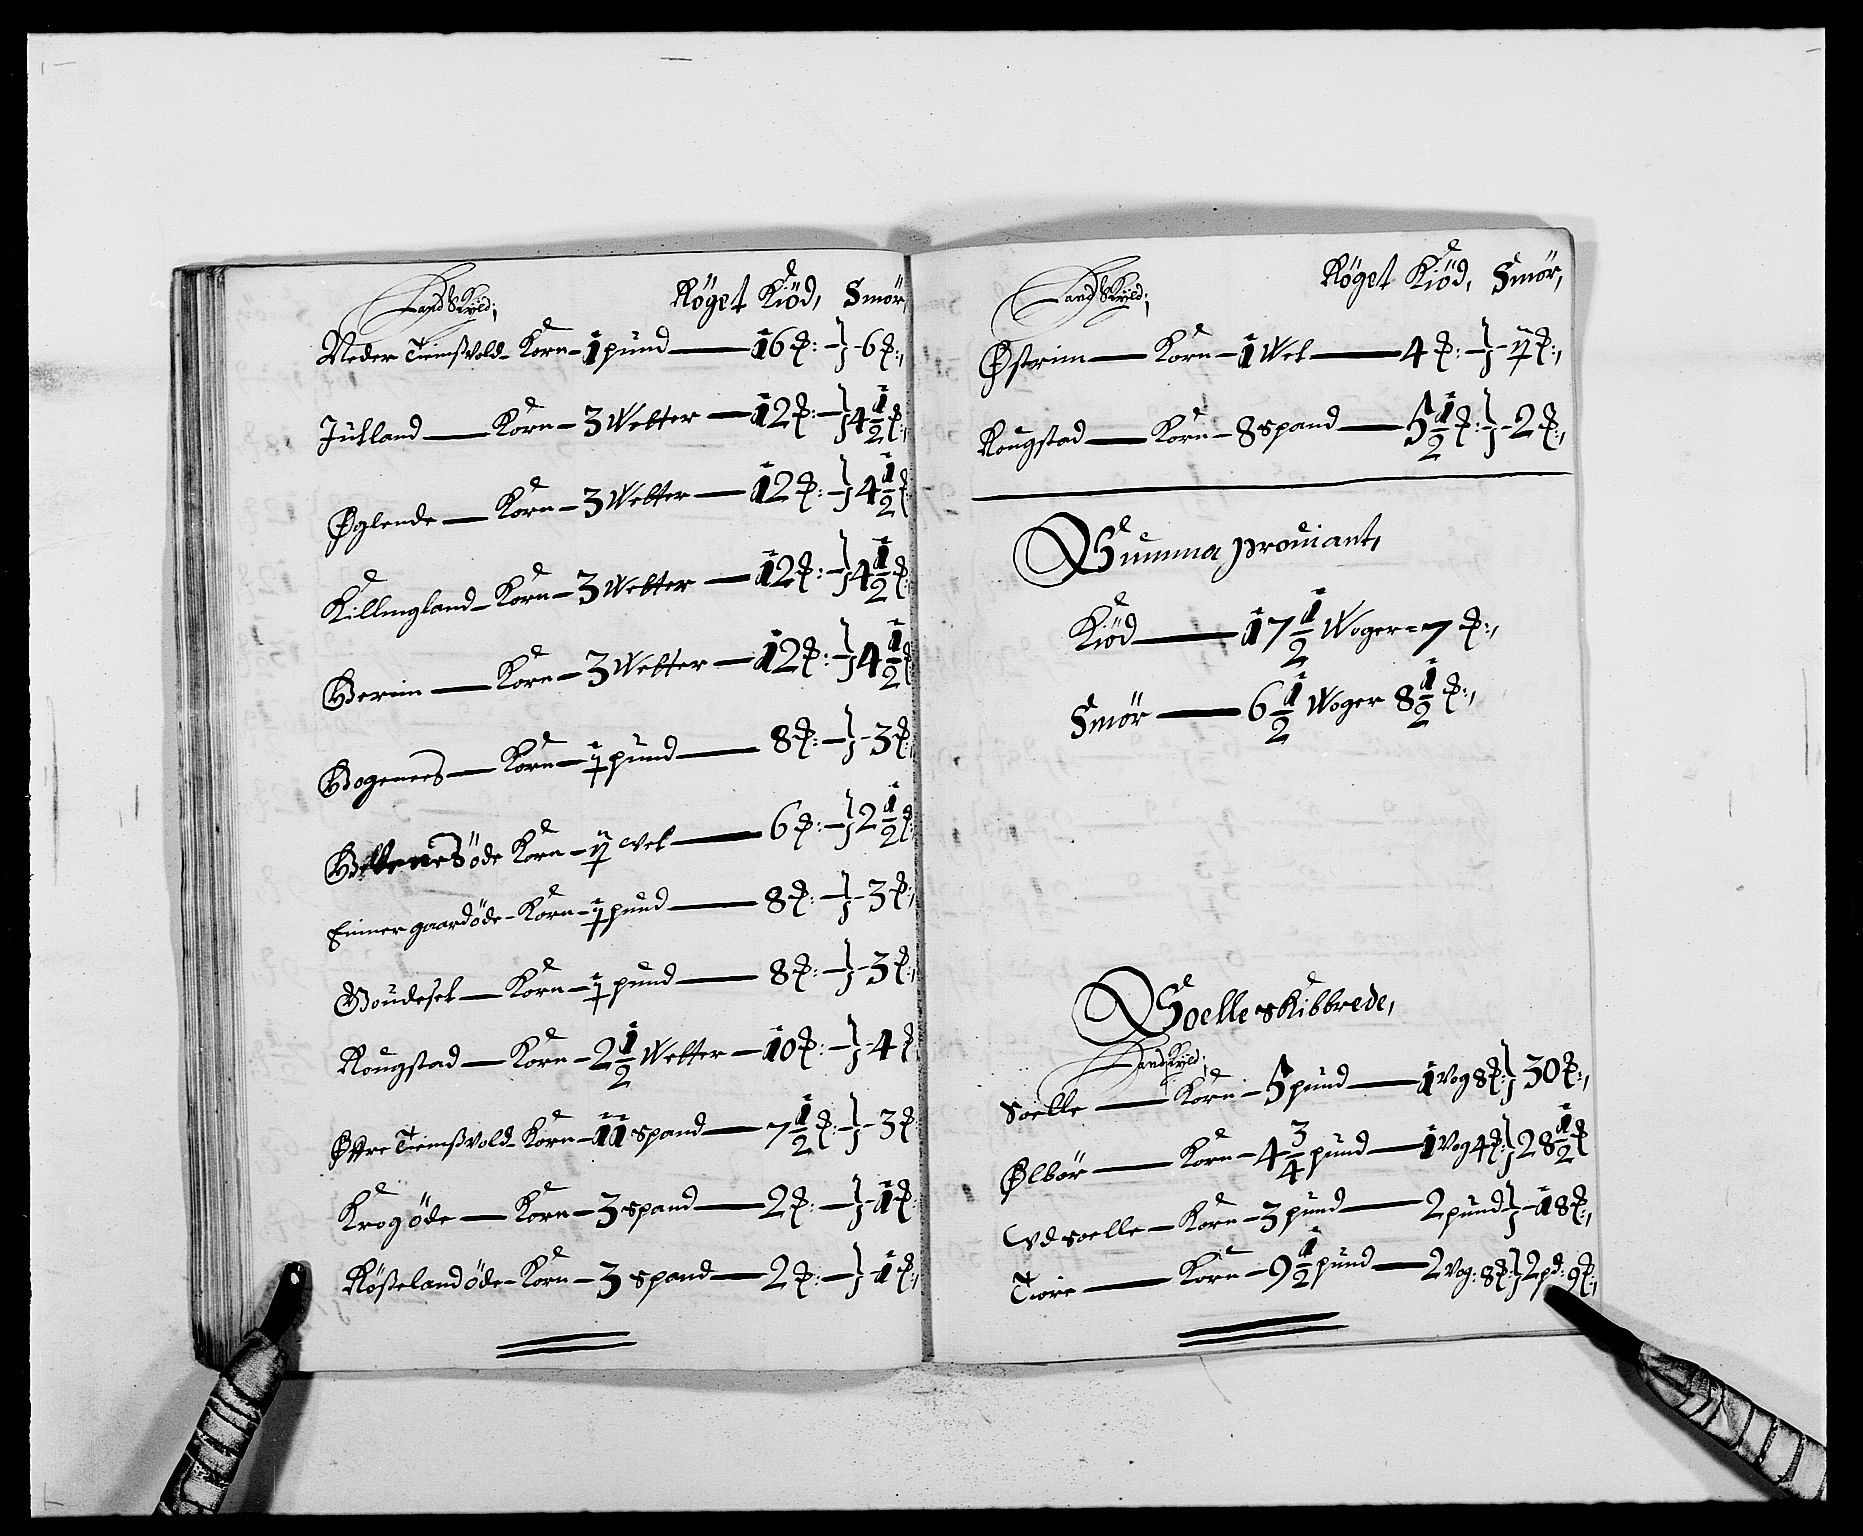 Land Skyld; Röget Kiöd, Smör,
Neder Tiemsvold - Korn - 1 pund — 16 ℔: — } - 6 ℔:,
Jütland — Korn - 3 Wetter — 12 ℔: — } 4 1/2 ℔:,
Øglende — Korn - 3 Wetter — 12 ℔: — } 4 1/2 ℔
Killingland - Korn - 3 Wetter — 12 ℔: — } 4 1/2 ℔:
Berim — Korn - 3 Wetter — 12 ℔: — } 4 1/2 ℔
Bogenees — Korn - ½ pund — 8 ℔: — } - 3 ℔:,
öde Korn - wet — 6 ℔: — } 2 1/2 ℔:
Einnergaard öde - Korn - ½ pund — 8 ℔: — } - 3 ℔:,
Boudeset — Korn - ½ pund — 8 ℔: — } - 3 ℔:,
Rougstad — Korn - 2 1/2 Wetter — 10 ℔: — } - 4 ℔
Øttre Tiemsvold - Korn - 11 spand — 7 1/2 ℔: — } - 3 ℔
Krog öde — Korn - 3 spand — 2 ℔: — } - 1 ℔:
Rößeland öde - Korn - 3 spand — 2 ℔: — } - 1 ℔:,
Land Skyld; Röget Kiöd, Smör,
Østrim — Korn - 1 Wet — 4 ℔: — } - ℔:,
Rougstad — Korn - 8 spand — 5 1/2 ℔: — } - 2 ℔:,
Summa proviant,
Kiöd — 17 1/2 Woger = 7 ℔:,
Smör — 6 1/2 Woger 8 1/2 ℔:,
Soelle skibbrede,
Land Skyld;
Soelle — Korn - 5 pund — 1 Vog 8 ℔: } 30 ℔:,
Ølbör — Korn - 4 3/4 pund — 1 Vog 4 ℔: } 28 1/2 ℔
Vd soelle - Korn - 3 pund — 2 pund } - 18 ℔:,
Tiore — Korn - 9 1/2 pund — 2 Vog: 8 ℔: } 2 pd: 9 ℔:,